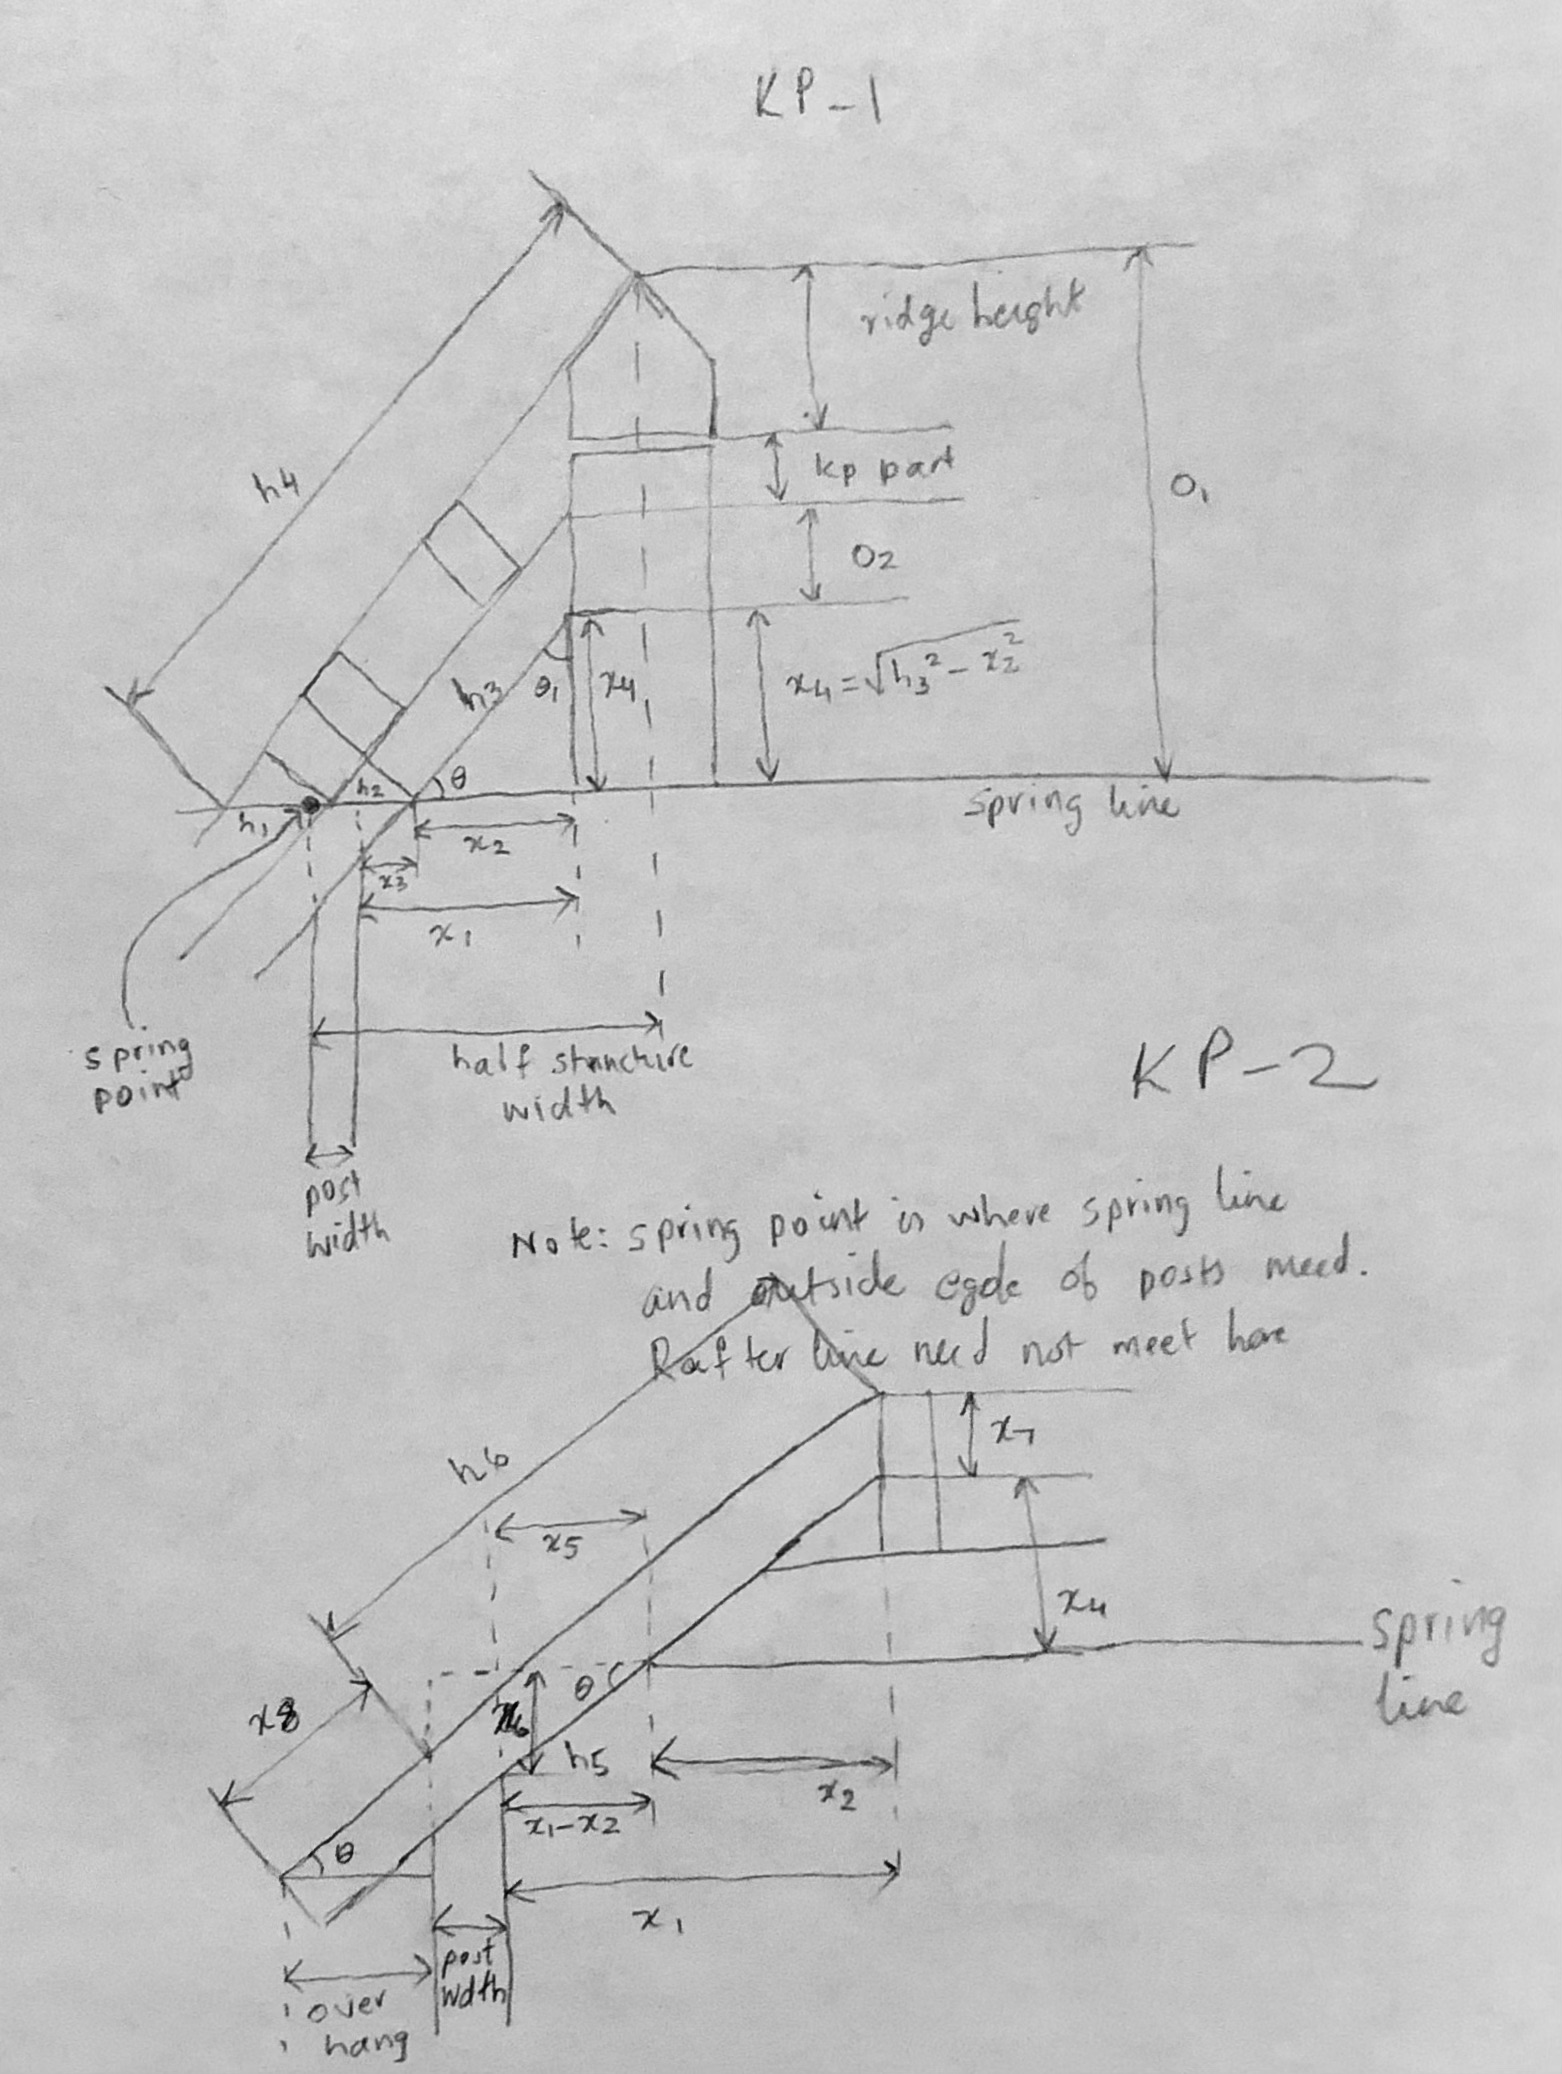 KP-1
ridge height
h4
kp part
O₁
O₂
h3
θ₁
x4
x₄=√h₃²-x₂²
θ
h₂
h₁
spring line
x₂
x₃
x₁
spring
point
half structure
width
KP-2
post
width
Note: spring point is where spring line
and outside egde of posts meed.
Rafter line need not meet here
x7
h6
x5
x4
spring
line
x8
θ
x6
h5
x₂
x₁-x₂
θ
x₁
post
wdth
over
hang